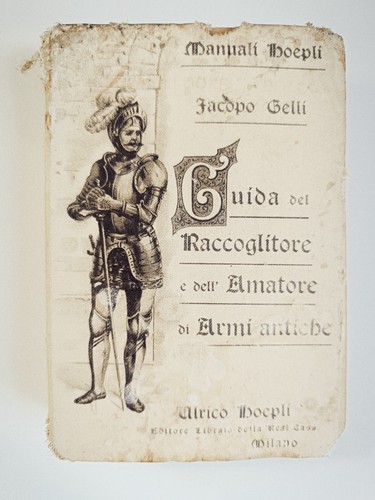 Manuali Hoepli
Jacopo Gelli
Guida del
Raccoglitore
e dell' Amatore
di Armi antiche
Ulrico Hoepli
Editore Libraio della Real Casa
Milano